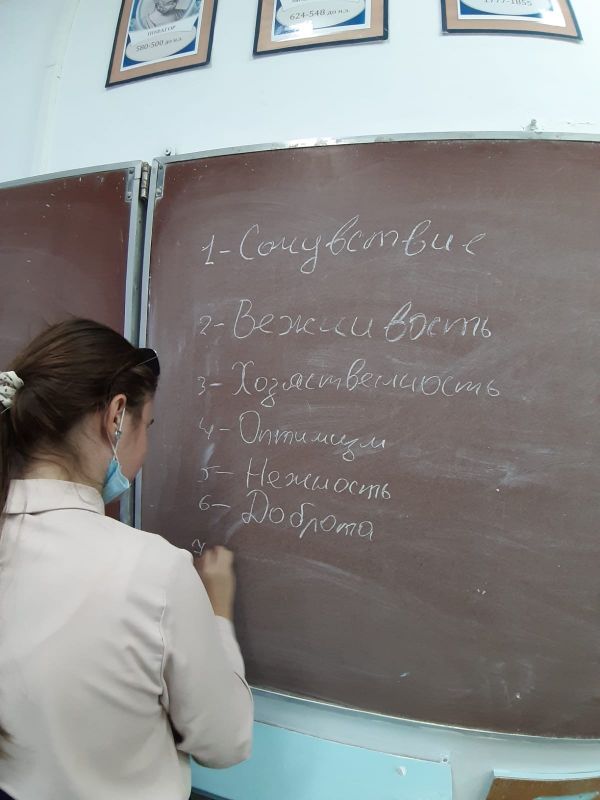 ПИФАГОР
580-500 до н.э.
624-548 до н.э.
1777-1855
1- Сочувствие
2- Вежливость
3- Хозяственность
4- Оптимизм
5- Нежность
6- Доброта
7